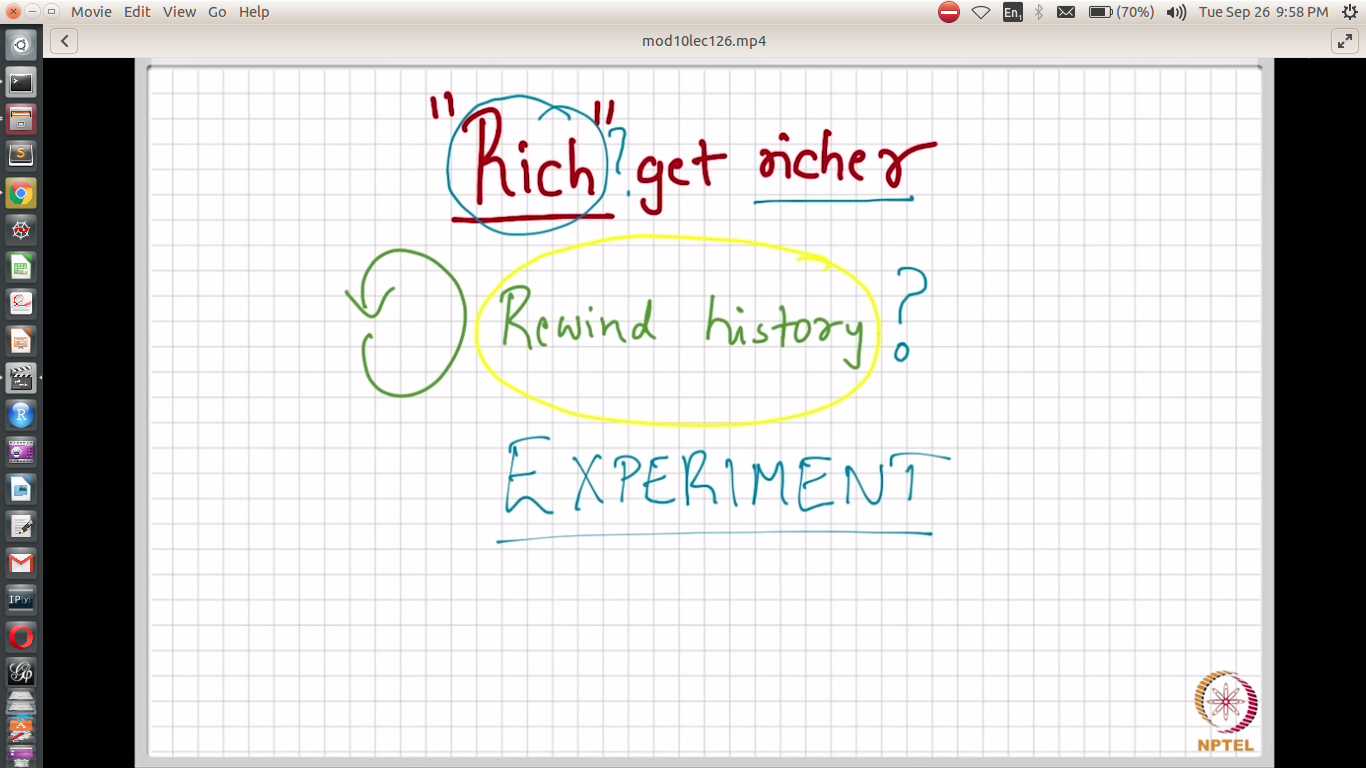 Movie Edit View Go Help En1 (70%) Tue Sep 26 9:58 PM
mod10lec126.mp4
"Rich"? get richer
Rewind history ?
EXPERIMENT
NPTEL